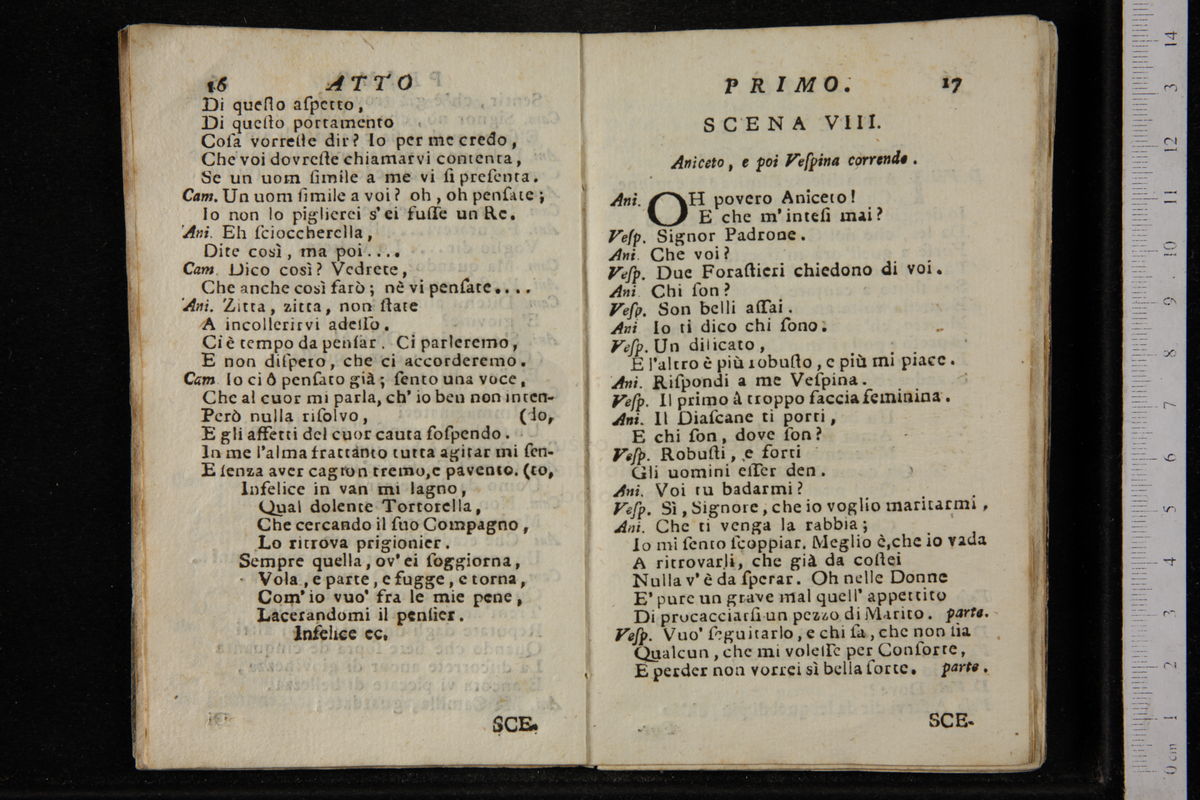 16 ATTO
Di questo aspetto,
Di questo portamento
Cosa vorreste dir? Io per me credo,
Che voi dovreste chiamarvi contenta,
Se un uom simile a me vi si presenta.
Cam. Un uom simile a voi? oh, oh pensate;
Io non lo piglierei s' ei fusse un Re.
Ani. Eh scioccherella,
Dite così, ma poi....
Cam. Dico così? Vedrete,
Che anche così farò; nè vi pensate....
Ani. Zitta, zitta, non state
A incollerirvi adesso.
Ci è tempo da pensar. Ci parleremo,
E non dispero, che ci accorderemo.
Cam. Io ci ò pensato già; sento una voce,
Che al cuor mi parla, ch' io ben non inten-
Però nulla risolvo, (do,
E gli affetti del cuor cauta sospendo.
In me l'alma frattanto tutta agitar mi sen-
E senza aver cagion tremo, e pavento. (to,
Infelice in van mi lagno,
Qual dolente Tortorella,
Che cercando il suo Compagno,
Lo ritrova prigionier.
Sempre quella, ov' ei soggiorna,
Vola, e parte, e fugge, e torna,
Com' io vuo' fra le mie pene,
Lacerandomi il pensier.
Infelice ec.
SCE-
PRIMO. 17
SCENA VIII.
Aniceto, e poi Vespina correndo.
Ani. OH povero Aniceto!
E che m' intesi mai?
Vesp. Signor Padrone.
Ani. Che voi?
Vesp. Due Forastieri chiedono di voi.
Ani. Chi son?
Vesp. Son belli assai.
Ani. Io ti dico chi sono.
Vesp. Un dilicato,
E l'altro è più robusto, e più mi piace.
Ani. Rispondi a me Vespina.
Vesp. Il primo à troppo faccia feminina.
Ani. Il Diascane ti porti,
E chi son, dove son?
Vesp. Robusti, e forti
Gli uomini esser den.
Ani. Voi tu badarmi?
Vesp. Sì, Signore, che io voglio maritarmi.
Ani. Che ti venga la rabbia;
Io mi sento scoppiar. Meglio è, che io vada
A ritrovarli, che già da costei
Nulla v' è da sperar. Oh nelle Donne
E' pure un grave mal quell' appettito
Di procacciarsi un pezzo di Marito. parte.
Vesp. Vuo' seguitarlo, e chi sa, che non sia
Qualcun, che mi volesse per Consorte,
E perder non vorrei sì bella sorte. parte.
SCE-